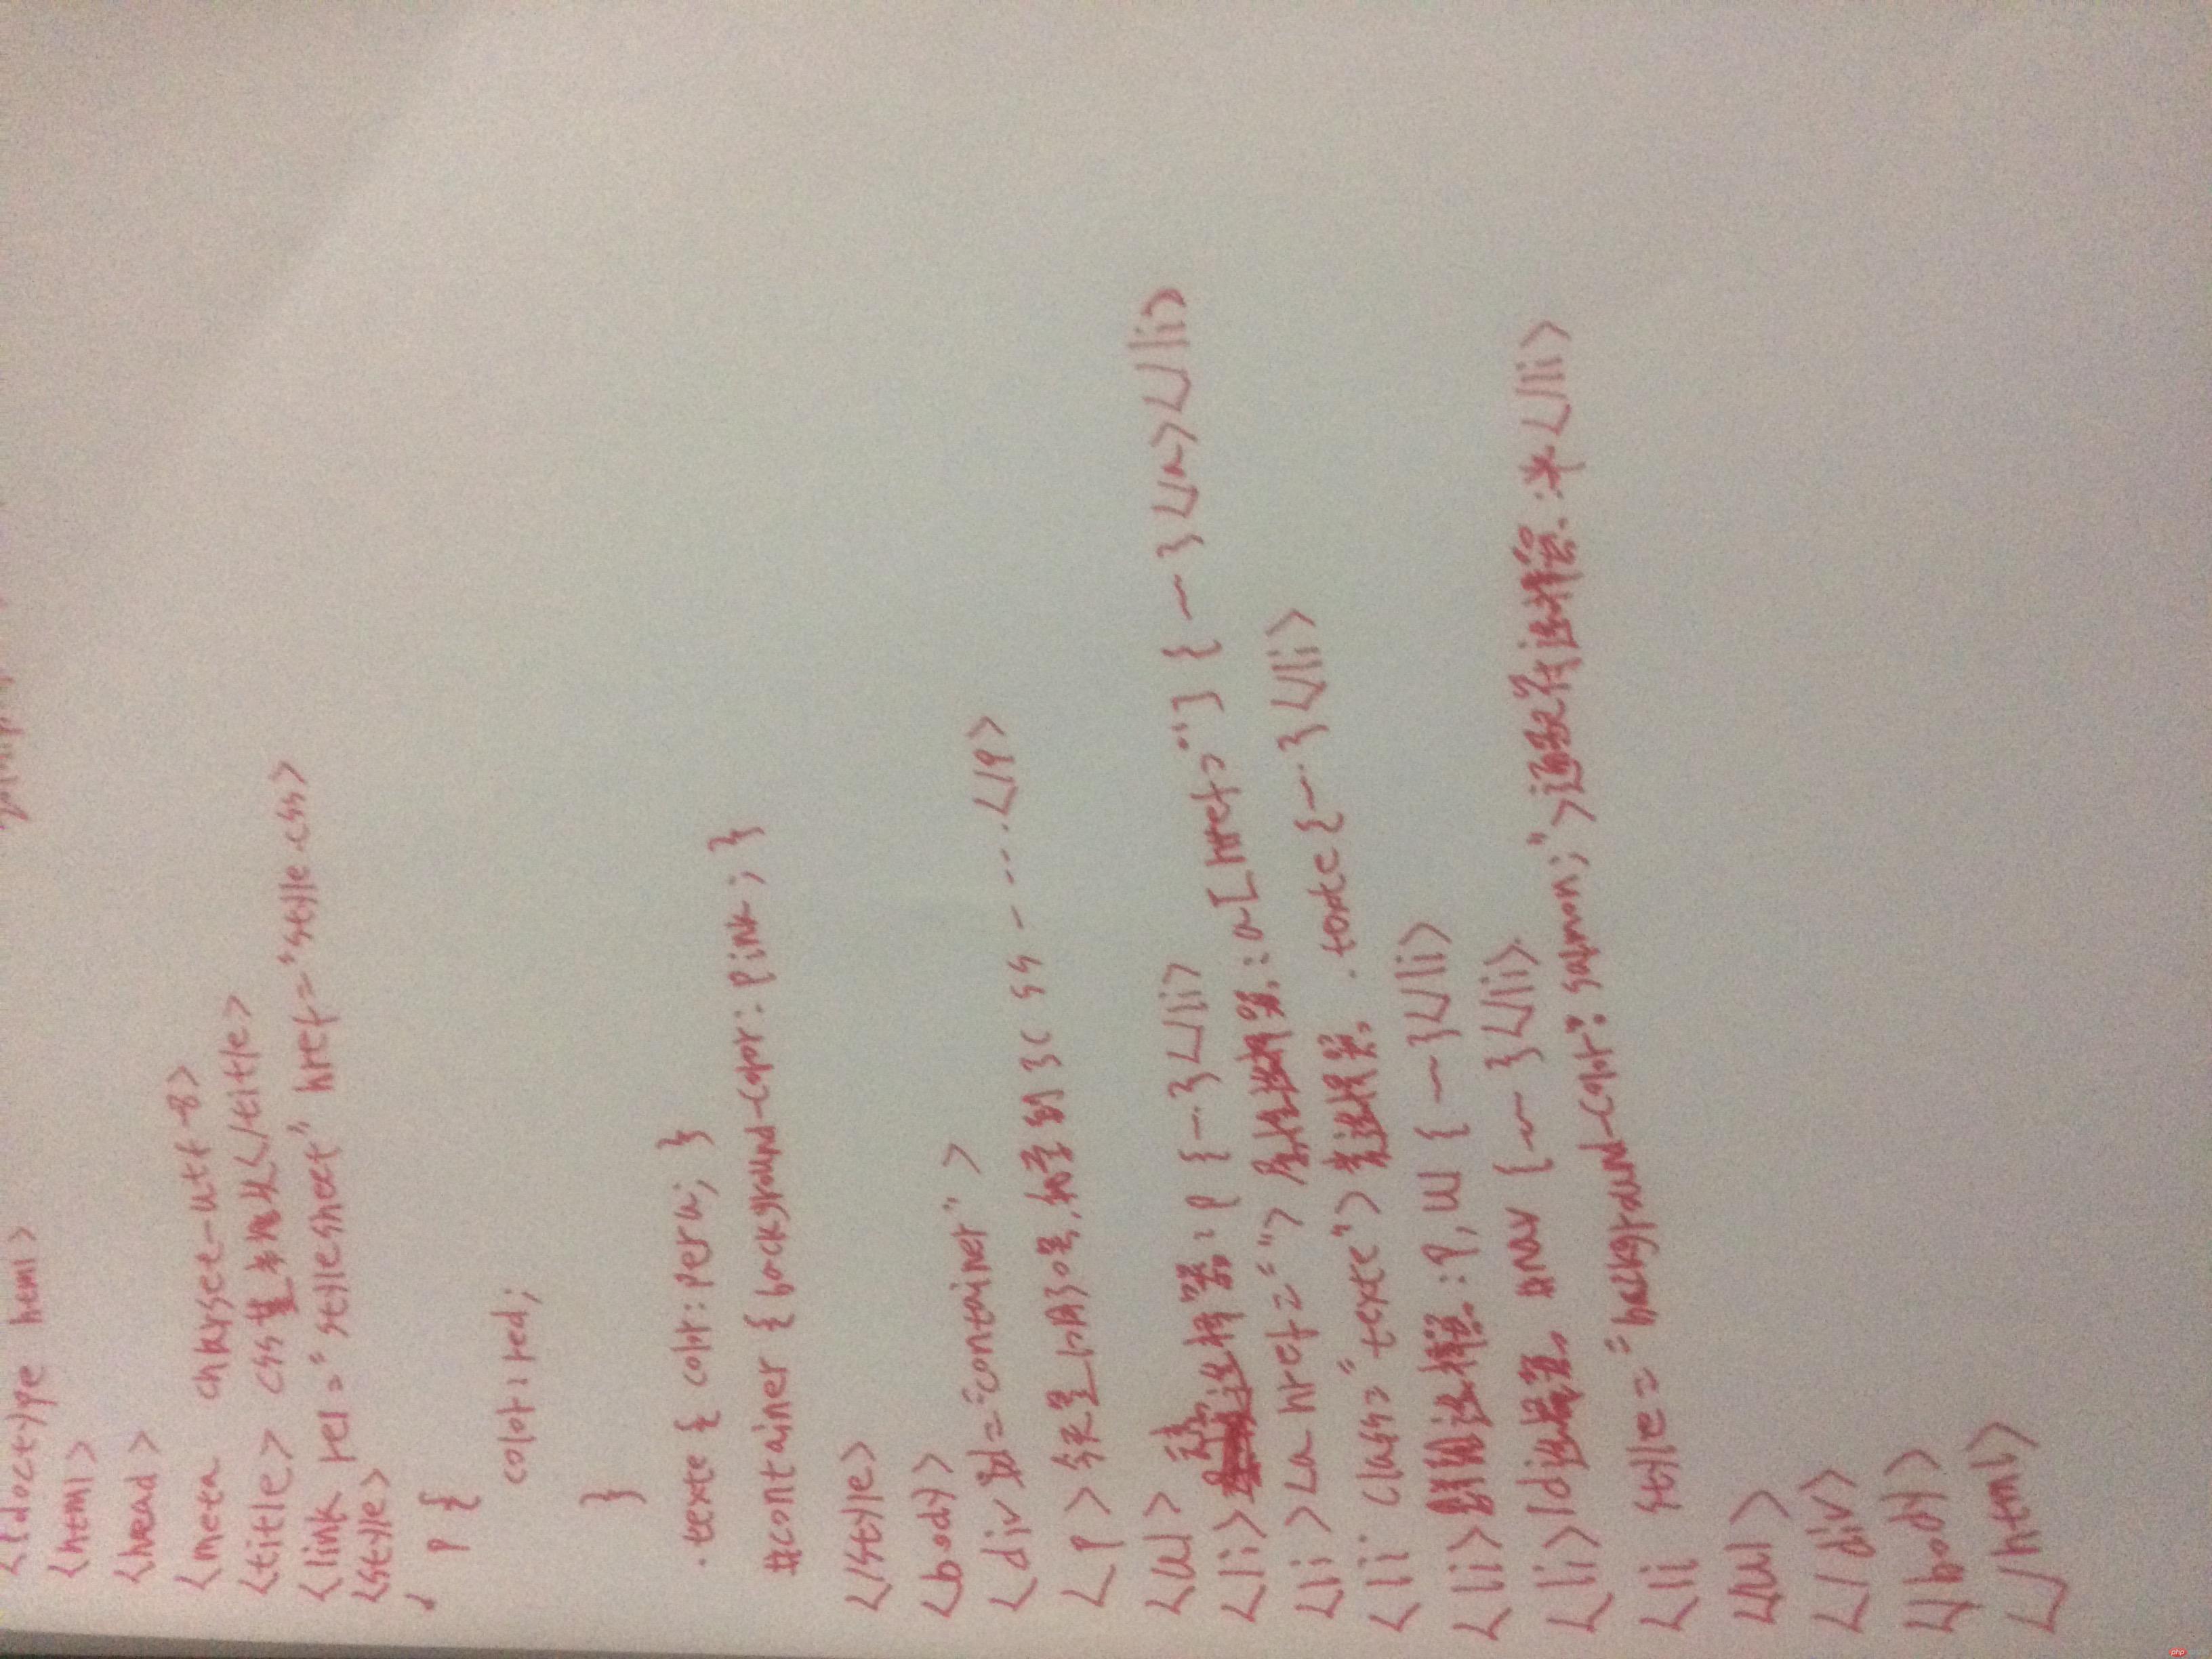 <!doctype html>
<html>
<head>
<meta charset-utf-8>
<title>css基本知识</title>
<link rel="stylesheet" href="style.css>
<style>
p {
color:red;
}
.texte { color: peru; }
#container { background-color: pink; }
</style>
<body>
<div id="container">
<p>今天是10月30号, css ---...</p>
<ul>
<li>标签选择器:p {~}</li>
<li><a href="">属性选择器:a[href=""] {~}</a></li>
<li class="texte">类选择器. .texte {~}</li>
<li>群组选择器:p,ul {~}</li>
<li>id选择器. #nav {~}</li>
<li style="background-color: salmon;">通配符选择器:*</li>
</ul>
</div>
</body>
</html>
php